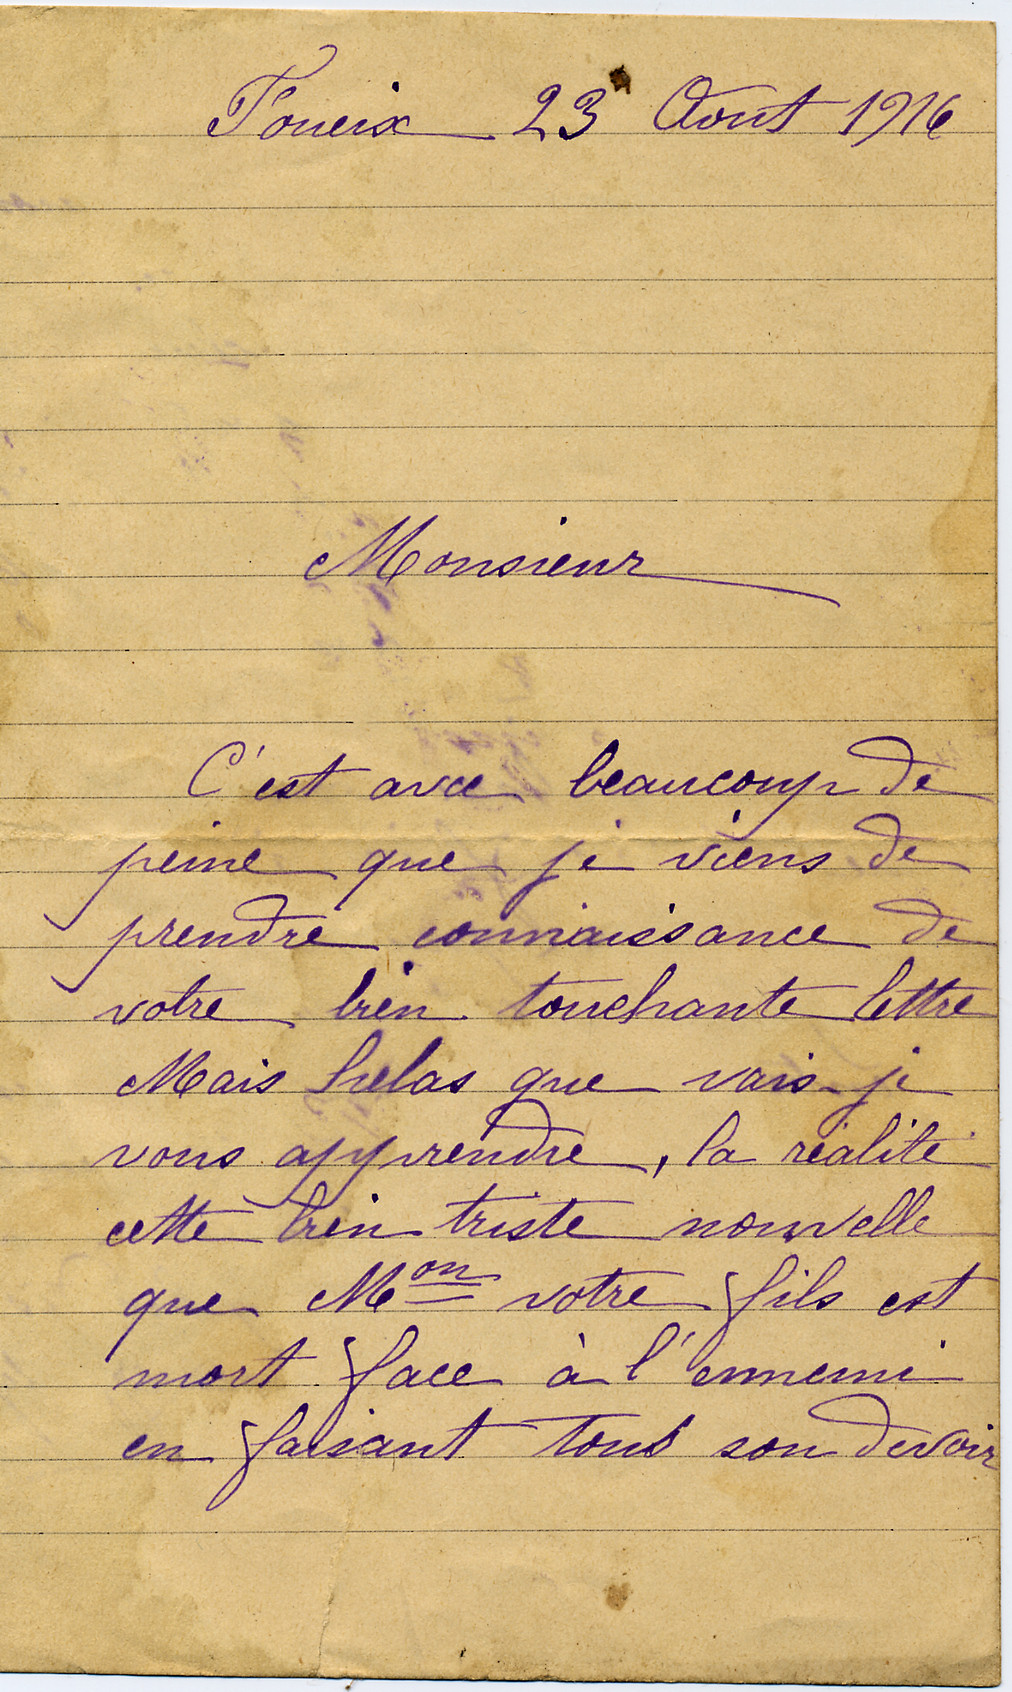 Toueix 23 Aout 1916
Monsieur
C'est avec beaucoup de
peine que je viens de
prendre connaissance de
votre bien touchante lettre
Mais helas que vais-je
vous apprendre, la réalité
cette bien triste nouvelle
que Mon votre fils est
mort face à l'ennemi
en faisant tous son devoir